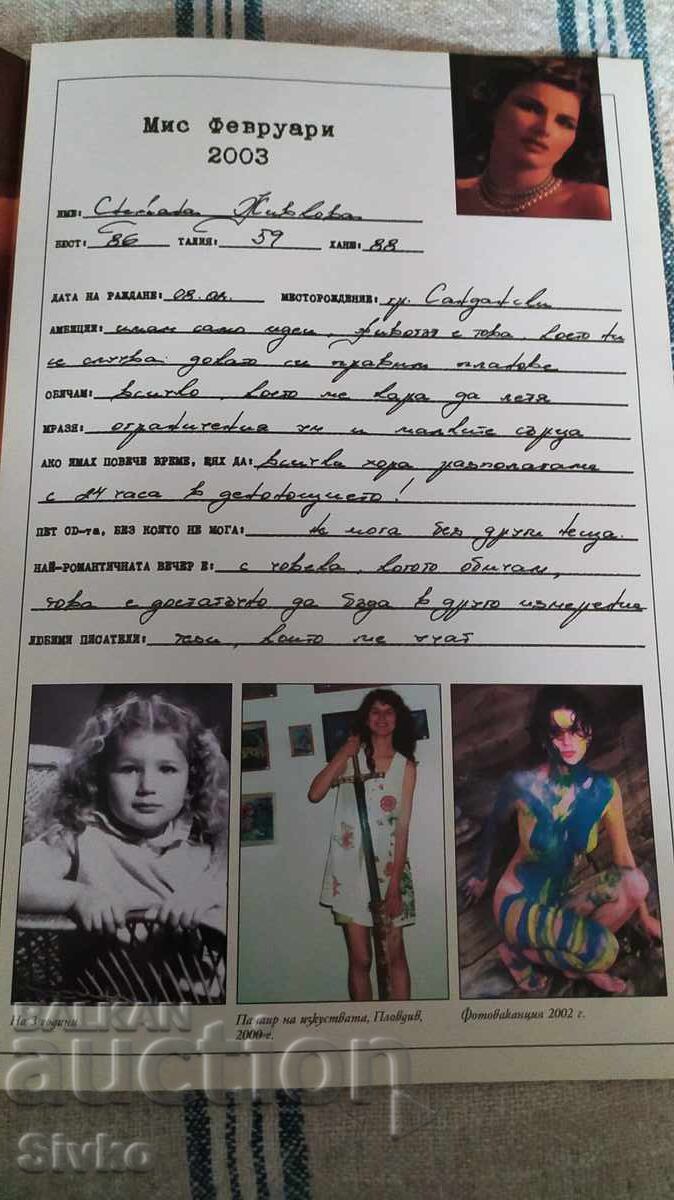 Мис Февруари
2003
ИМЕ: Живкова
БЮСТ: 86 ТАЛИЯ: 59 ХАНШ: 88
ДАТА НА РАЖДАНЕ: 08.04. МЕСТОРОЖДЕНИЕ: гр. Сандански
АМБИЦИИ: имам само идеи, живота е това, което ни
се случва докато си правим планове
ОБИЧАМ: всичко, което ме кара да летя
МРАЗЯ: ограничения ум и малките сърца
АКО ИМАХ ПОВЕЧЕ ВРЕМЕ, ЩЯХ ДА: всички хора разполагаме
с 24 часа в денонощието!
ПЕТ CD-та, БЕЗ КОИТО НЕ МОГА: Не мога без други неща.
НАЙ-РОМАНТИЧНАТА ВЕЧЕР Е: с човека, когото обичам,
това е достатъчно да бъда в друго измерение
ЛЮБИМИ ПИСАТЕЛИ: тези, които ме учат
На 3 години
Панаир на изкуствата, Пловдив,
2000 г.
Фотоваканция 2002 г.
BALKAN
auction
Sivko